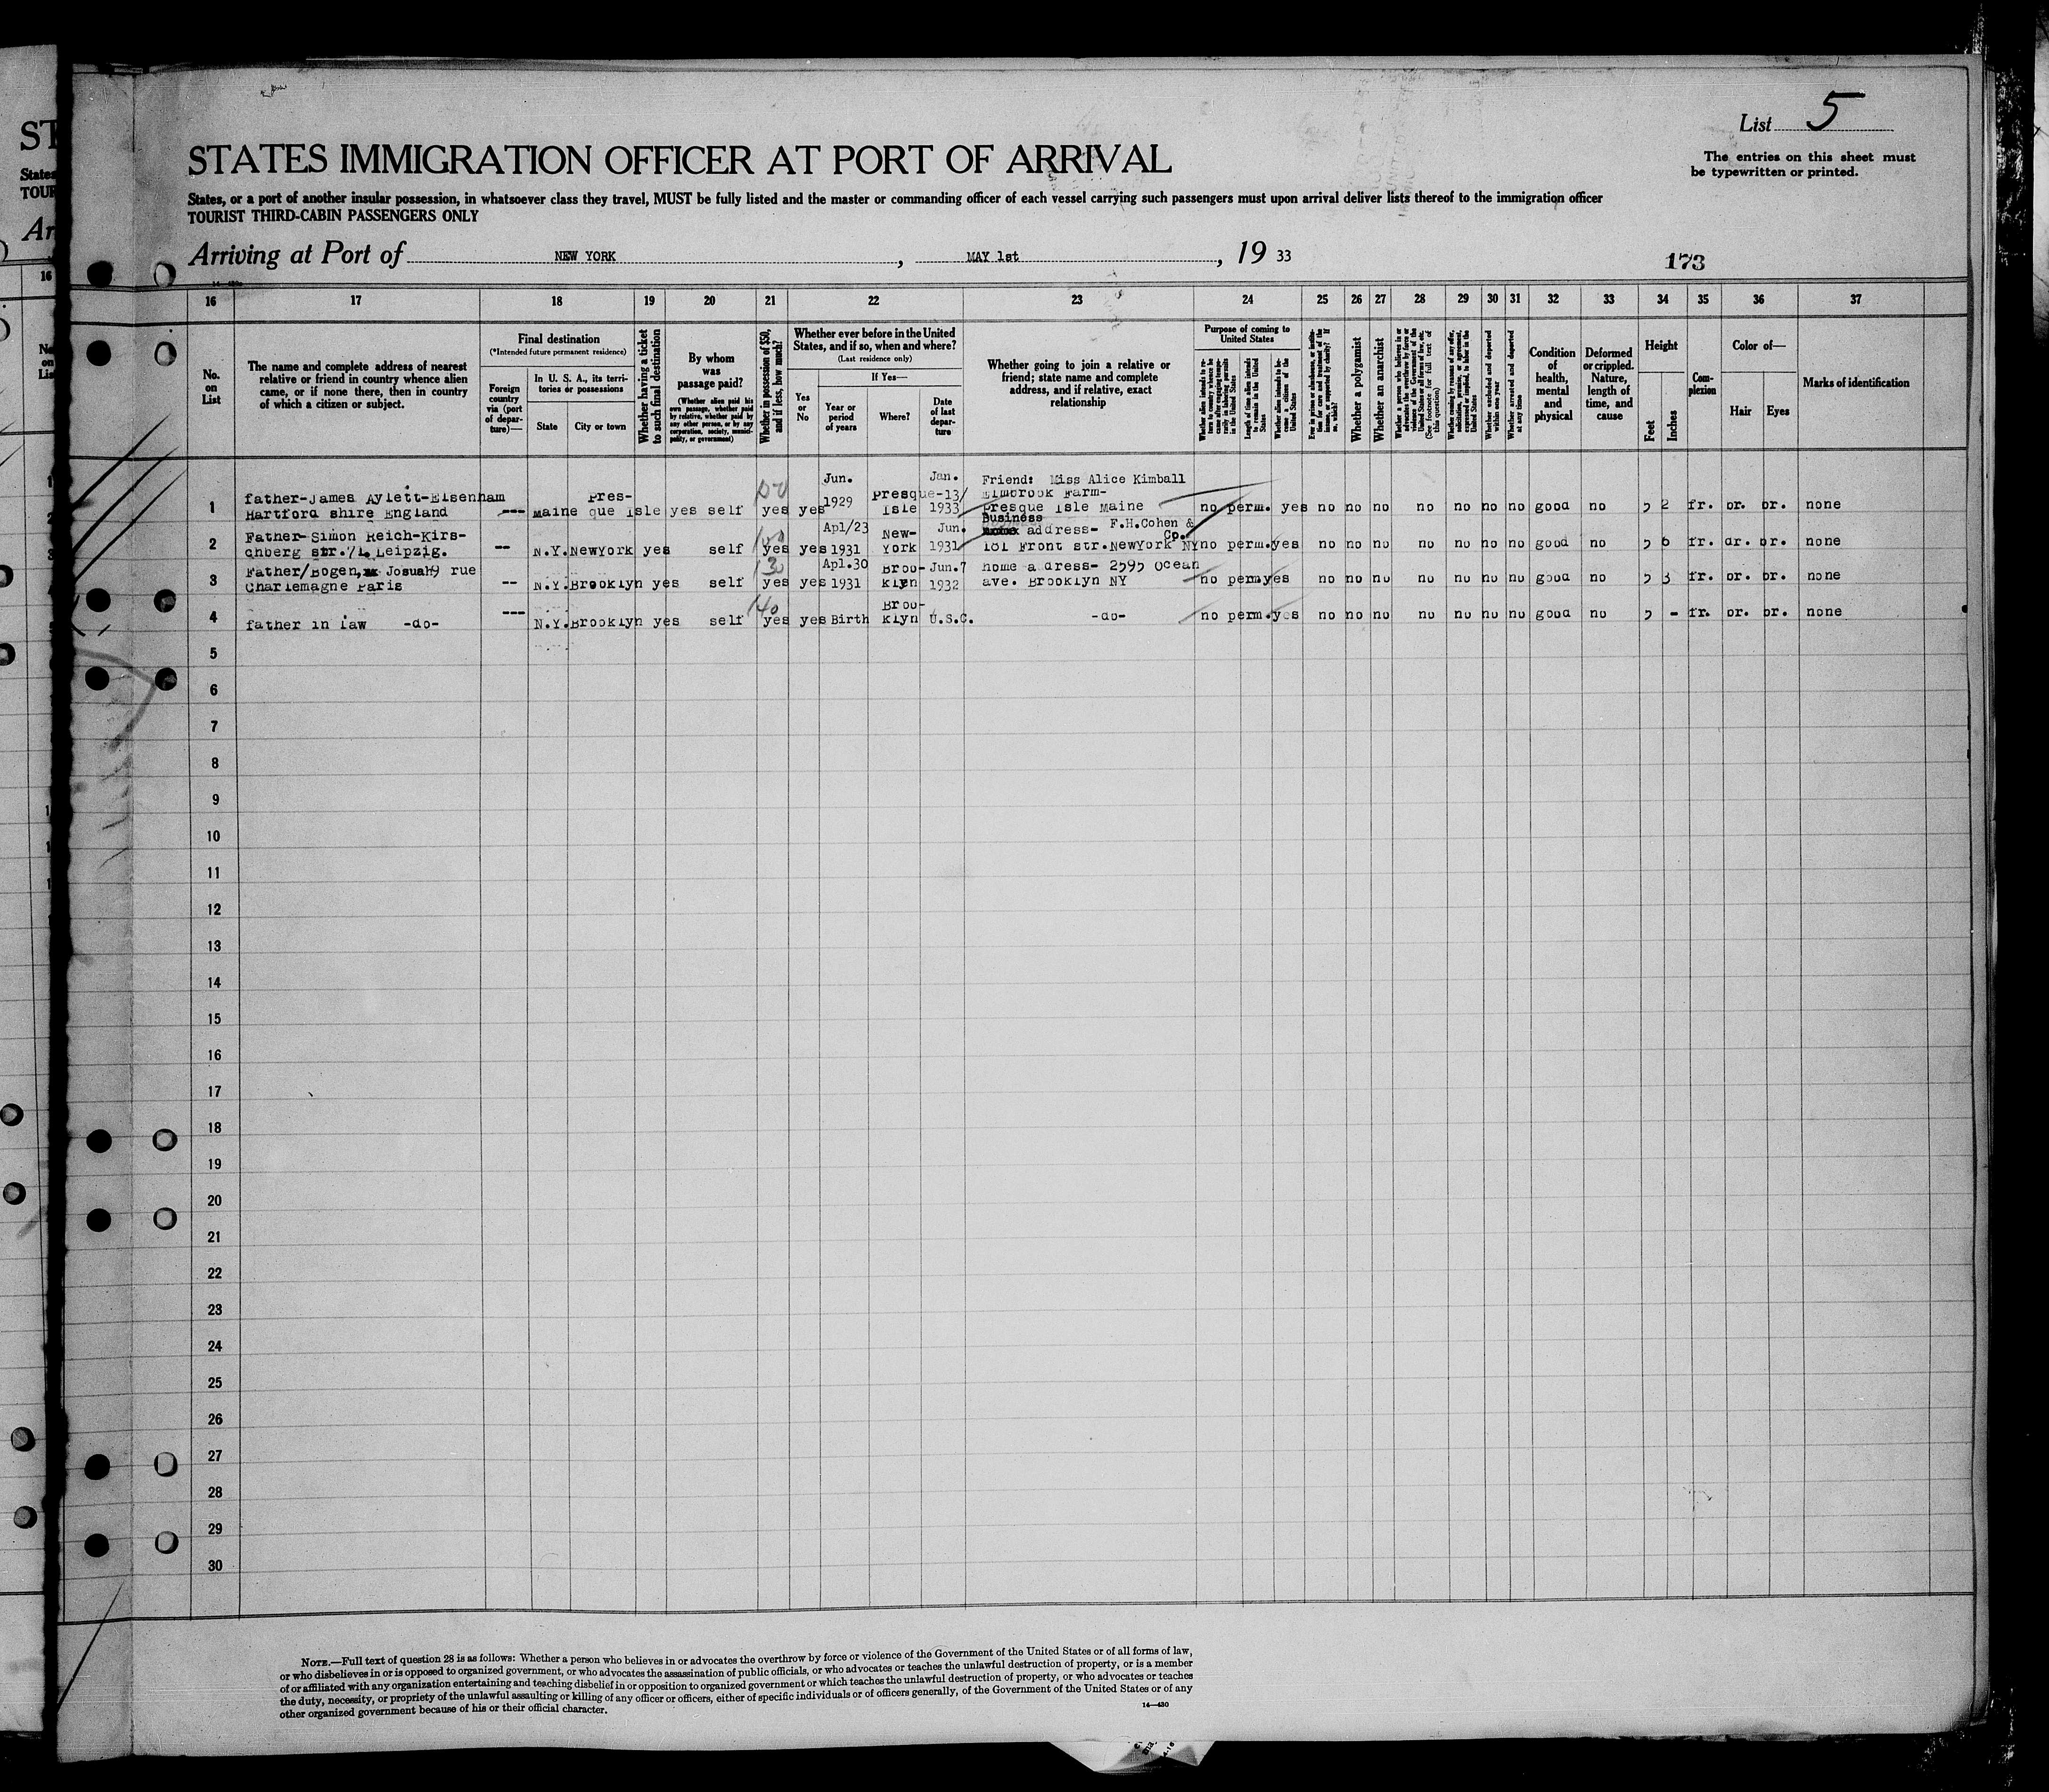 List 5
The entries on this sheet must
be typewritten or printed.
STATES IMMIGRATION OFFICER AT PORT OF ARRIVAL
States, or a port of another insular possession, in whatsoever class they travel, MUST be fully listed and the master or commanding officer of each vessel carrying such passengers must upon arrival deliver lists thereof to the immigration officer
TOURIST THIRD-CABIN PASSENGERS ONLY
Arriving at Port of NEW YORK, MAY 1st, 19 33
173
16 17 18 19 20 21 22 23 24 25 26 27 28 29 30 31 32 33 34 35 36 37
No. on List
The name and complete address of nearest
relative or friend in country whence alien
came, or if none there, then in country
of which a citizen or subject.
Final destination
(*Intended future permanent residence)
Foreign country via (port of departure)—
In U. S. A., its territories or possessions
State
City or town
Whether having a ticket to such final destination
By whom was passage paid?
(Whether alien paid his own passage, whether paid by relative, whether paid by any other person, or by any corporation, society, municipality, or government)
Whether in possession of $50, and if less, how much?
Whether ever before in the United
States, and if so, when and where?
(Last residence only)
Yes or No
If Yes—
Year or period of years
Where?
Date of last departure
Whether going to join a relative or
friend; state name and complete
address, and if relative, exact
relationship
Purpose of coming to United States
Length of time alien intends to remain in the United States
Whether alien intends to become a citizen of the United States
Whether a polygamist
Whether an anarchist
Whether arrested and deported within one year
Whether arrested and deported at any time
Condition of health, mental and physical
Deformed or crippled. Nature, length of time, and cause
Height
Feet
Inches
Complexion
Color of—
Hair
Eyes
Marks of identification
1 father-James Aylett-Elsenham
Hartford shire England --- Maine Presque Isle yes self 50 yes yes Jun. 1929 Presque Isle Jan. 13/ 1933 Friend: Miss Alice Kimball
Elmbrook Farm-
Presque Isle Maine no perm. yes no no no no no no no good no 5 2 fr. br. br. none
2 Father-Simon Reich-Kirs-
chberg str. 71 Leipzig. -- N.Y. NewYork yes self 100 yes yes Apl/23 1931 New-York Jun. 1931 Business
address- F.H.Cohen & Co.
181 Front str. NewYork NY no perm. yes no no no no no no no good no 5 6 fr. dr. br. none
3 Father/Bogen, Josuah9 rue
Charlemagne Paris -- N.Y. Brooklyn yes self 30 yes yes Apl.30 1931 Broo-klyn Jun.7 1932 home adress- 2595 Ocean
ave. Brooklyn NY no perm yes no no no no no no no good no 5 3 fr. br. br. none
4 father in law -do- --- N.Y. Brooklyn yes self 40 yes yes Birth Broo-klyn U.S.C. -do- no perm. yes no no no no no no no good no 5 - fr. br. br. none
5
6
7
8
9
10
11
12
13
14
15
16
17
18
19
20
21
22
23
24
25
26
27
28
29
30
NOTE.—Full text of question 28 is as follows: Whether a person who believes in or advocates the overthrow by force or violence of the Government of the United States or of all forms of law,
or who disbelieves in or is opposed to organized government, or who advocates the assassination of public officials, or who advocates or teaches the unlawful destruction of property, or is a member
of or affiliated with any organization entertaining and teaching disbelief in or opposition to organized government or which teaches the unlawful destruction of property, or who advocates or teaches
the duty, necessity, or propriety of the unlawful assaulting or killing of any officer or officers, either of specific individuals or of officers generally, of the Government of the United States or of any
other organized government because of his or their official character.
14—430